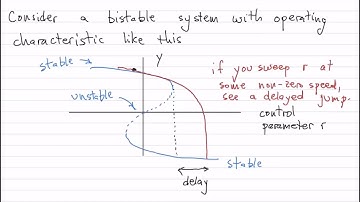 Consider a bistable system with operating
characteristic like this
stable
y
if you sweep r at
some non-zero speed,
see a delayed jump.
unstable
control
parameter r
stable
delay